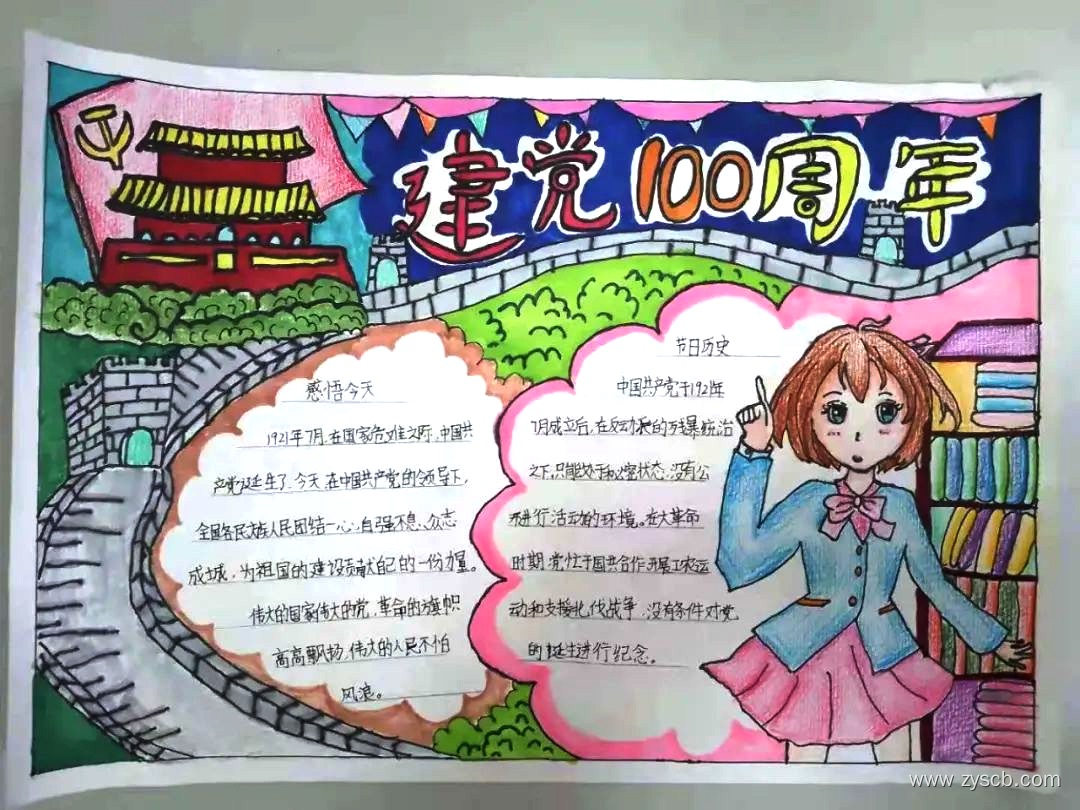 建党100周年
感悟今天
1921年7月,在国家危难之际,中国共
产党诞生了,今天,在中国共产党的领导下,
全国各民族人民团结一心,自强不息、众志
成城,为祖国的建设贡献自己的一份力量。
伟大的国家伟大的党,革命的旗帜
高高飘扬,伟大的人民不怕
风浪。
节日历史
中国共产党于1921年
7月成立后,在反动派的残暴统治
之下,只能处于秘密状态,没有公
开进行活动的环境。在大革命
时期,党忙于国共合作、开展工农运
动和支援北伐战争,没有条件对党
的诞生进行纪念。
www.zyscb.com